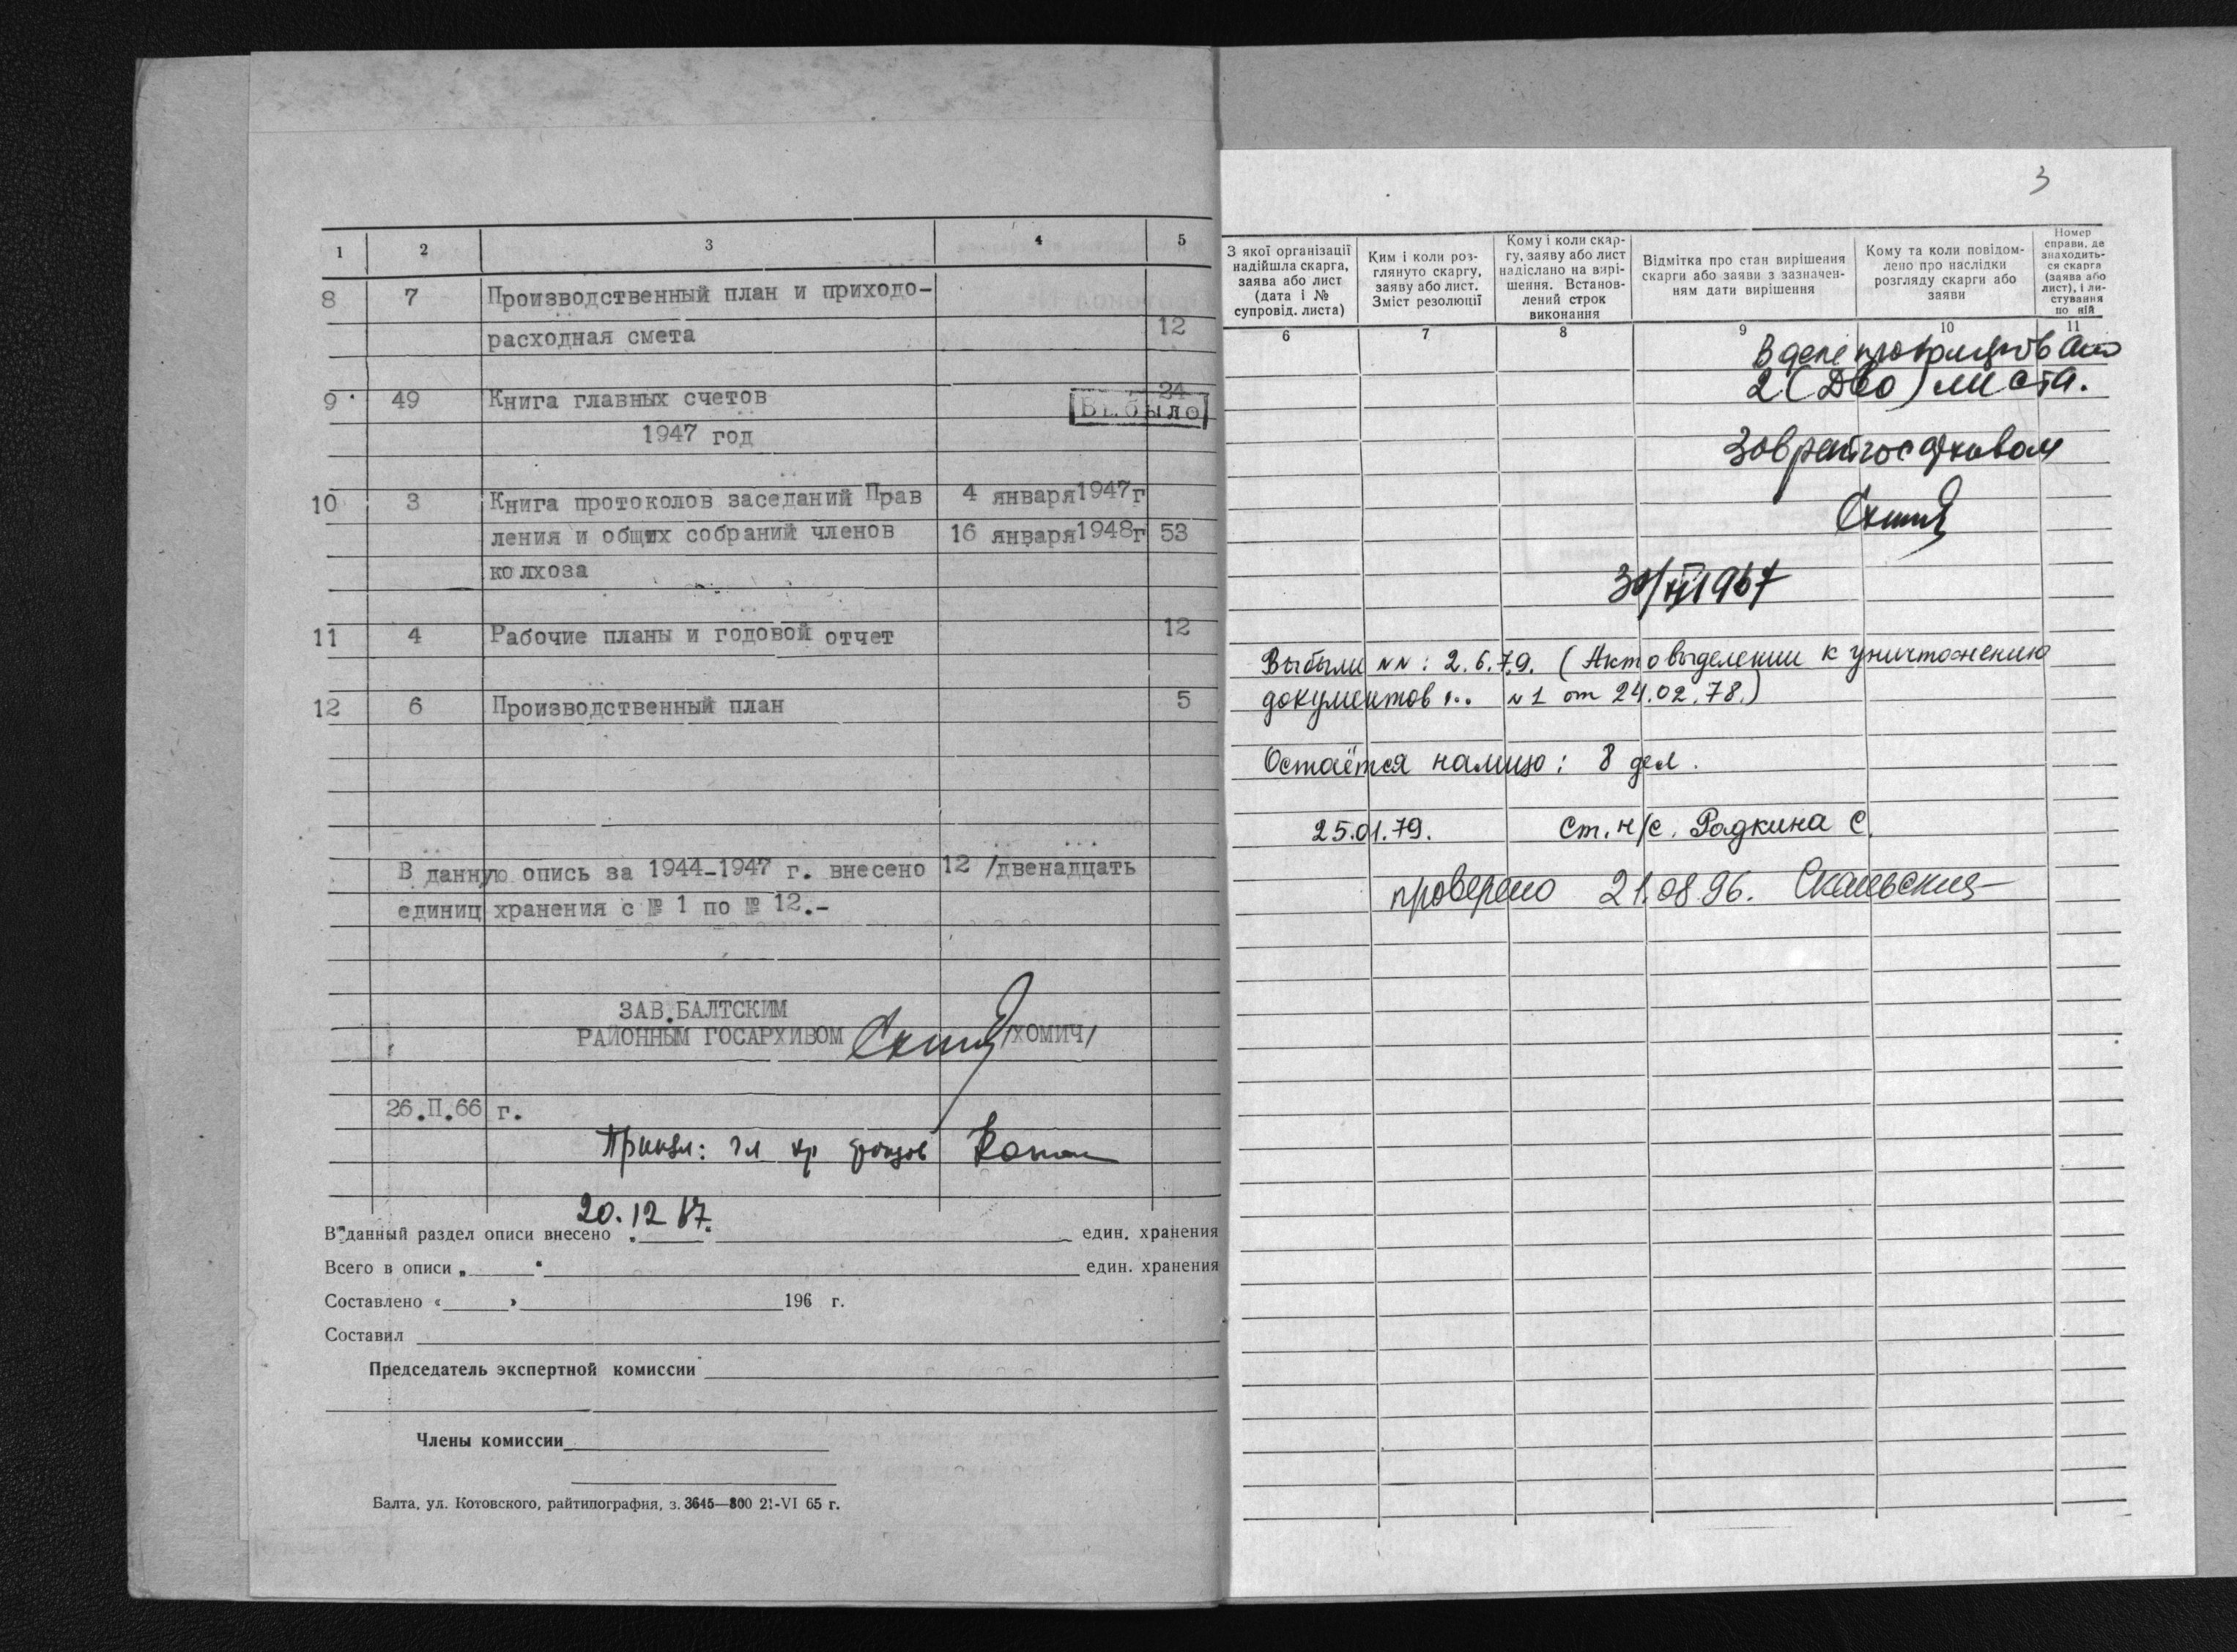 1 2 3 4 5
8 7 Производственный план и приходо-
расходная смета 12
9 49 Книга главных счетов 24
Выбыло
1947 год
10 3 Книга протоколов заседаний Прав 4 января 1947г
ления и общих собраний членов 16 января 1948г 53
колхоза
11 4 Рабочие планы и годовой отчет 12
12 6 Производственный план 5
В данную опись за 1944-1947 г. внесено 12 /двенадцать
единиц хранения с № 1 по № 12.-
ЗАВ.БАЛТСКИМ
РАЙОННЫМ ГОСАРХИВОМ /ХОМИЧ/
26.II.66 г.
20.12 67.
В данный раздел описи внесено един. хранения
Всего в описи един. хранения
Составлено « » 196 г.
Составил
Председатель экспертной комиссии
Члены комиссии
Балта, ул. Котовского, райтипография, з. 3645—800 21-VI 65 г.
3
З якої організації надійшла скарга, заява або лист (дата і № супровід. листа)
Ким і коли розглянуто скаргу, заяву або лист. Зміст резолюції
Кому і коли скаргу, заяву або лист надіслано на вирішення. Встановлений строк виконання
Відмітка про стан вирішення скарги або заяви з зазначенням дати вирішення
Кому та коли повідомлено про наслідки розгляду скарги або заяви
Номер справи, де знаходиться скарга (заява або лист), і листування по ній
6 7 8 9 10 11
В деле
2 (Два) листа.
Зав райгосархивом
1967
Выбыли NN: 2.6.7.9. (Акт о выделении к уничтожению
документов ... N1 от 24.02.78.)
Остаётся налицо: 8 дел.
25.01.79. Ст. н/с. Радкина С.
проверено 21.08.96.